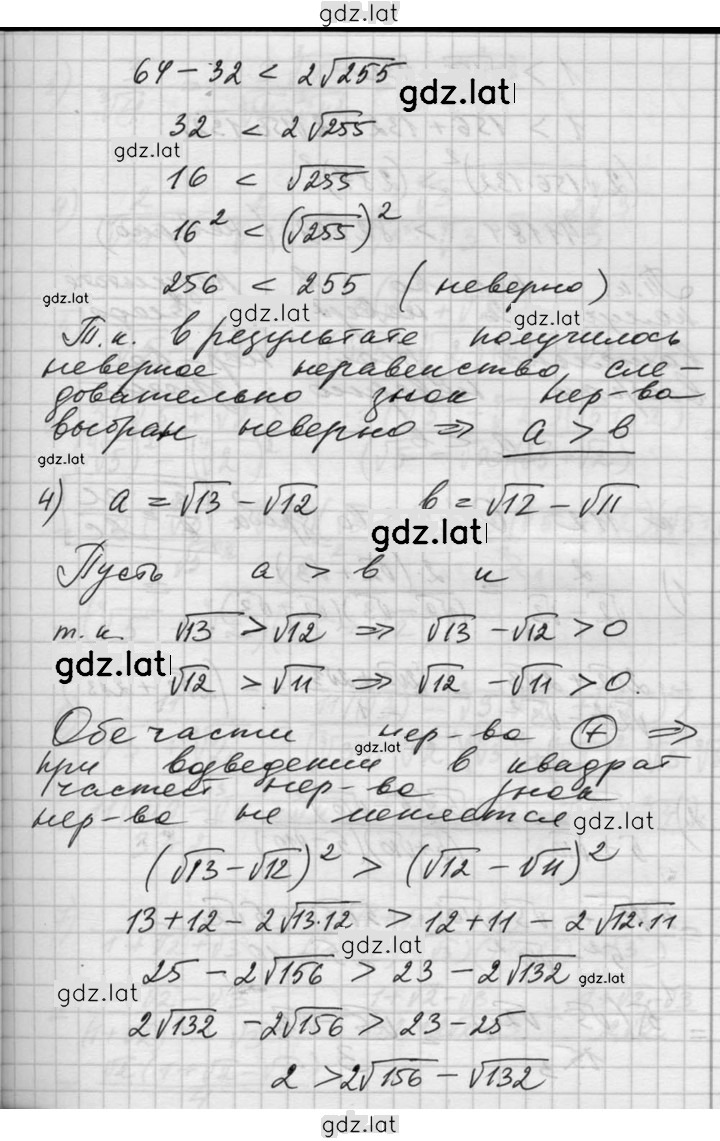 gdz.lat
64 − 32 < 2√255
gdz.lat
32 < 2√255
gdz.lat
16 < √255
16² < (√255)²
256 < 255 (неверно)
gdz.lat
gdz.lat
gdz.lat
Т.к. в результате получилось
неверное неравенство, сле-
довательно знак нер-ва
выбран неверно => a > b
gdz.lat
4) a = √13 − √12 b = √12 − √11
gdz.lat
Пусть a > b и
т.к. √13 > √12 => √13 − √12 > 0
gdz.lat
√12 > √11 => √12 − √11 > 0.
Обе части нер-ва (+) =>
gdz.lat
при возведении в квадрат
частей нер-ва знак
нер-ва не меняется
gdz.lat
(√13 − √12)² > (√12 − √11)²
13 + 12 − 2√13·12 > 12 + 11 − 2√12·11
gdz.lat
25 − 2√156 > 23 − 2√132
gdz.lat
gdz.lat
2√132 − 2√156 > 23 − 25
2 > 2√156 − √132
gdz.lat